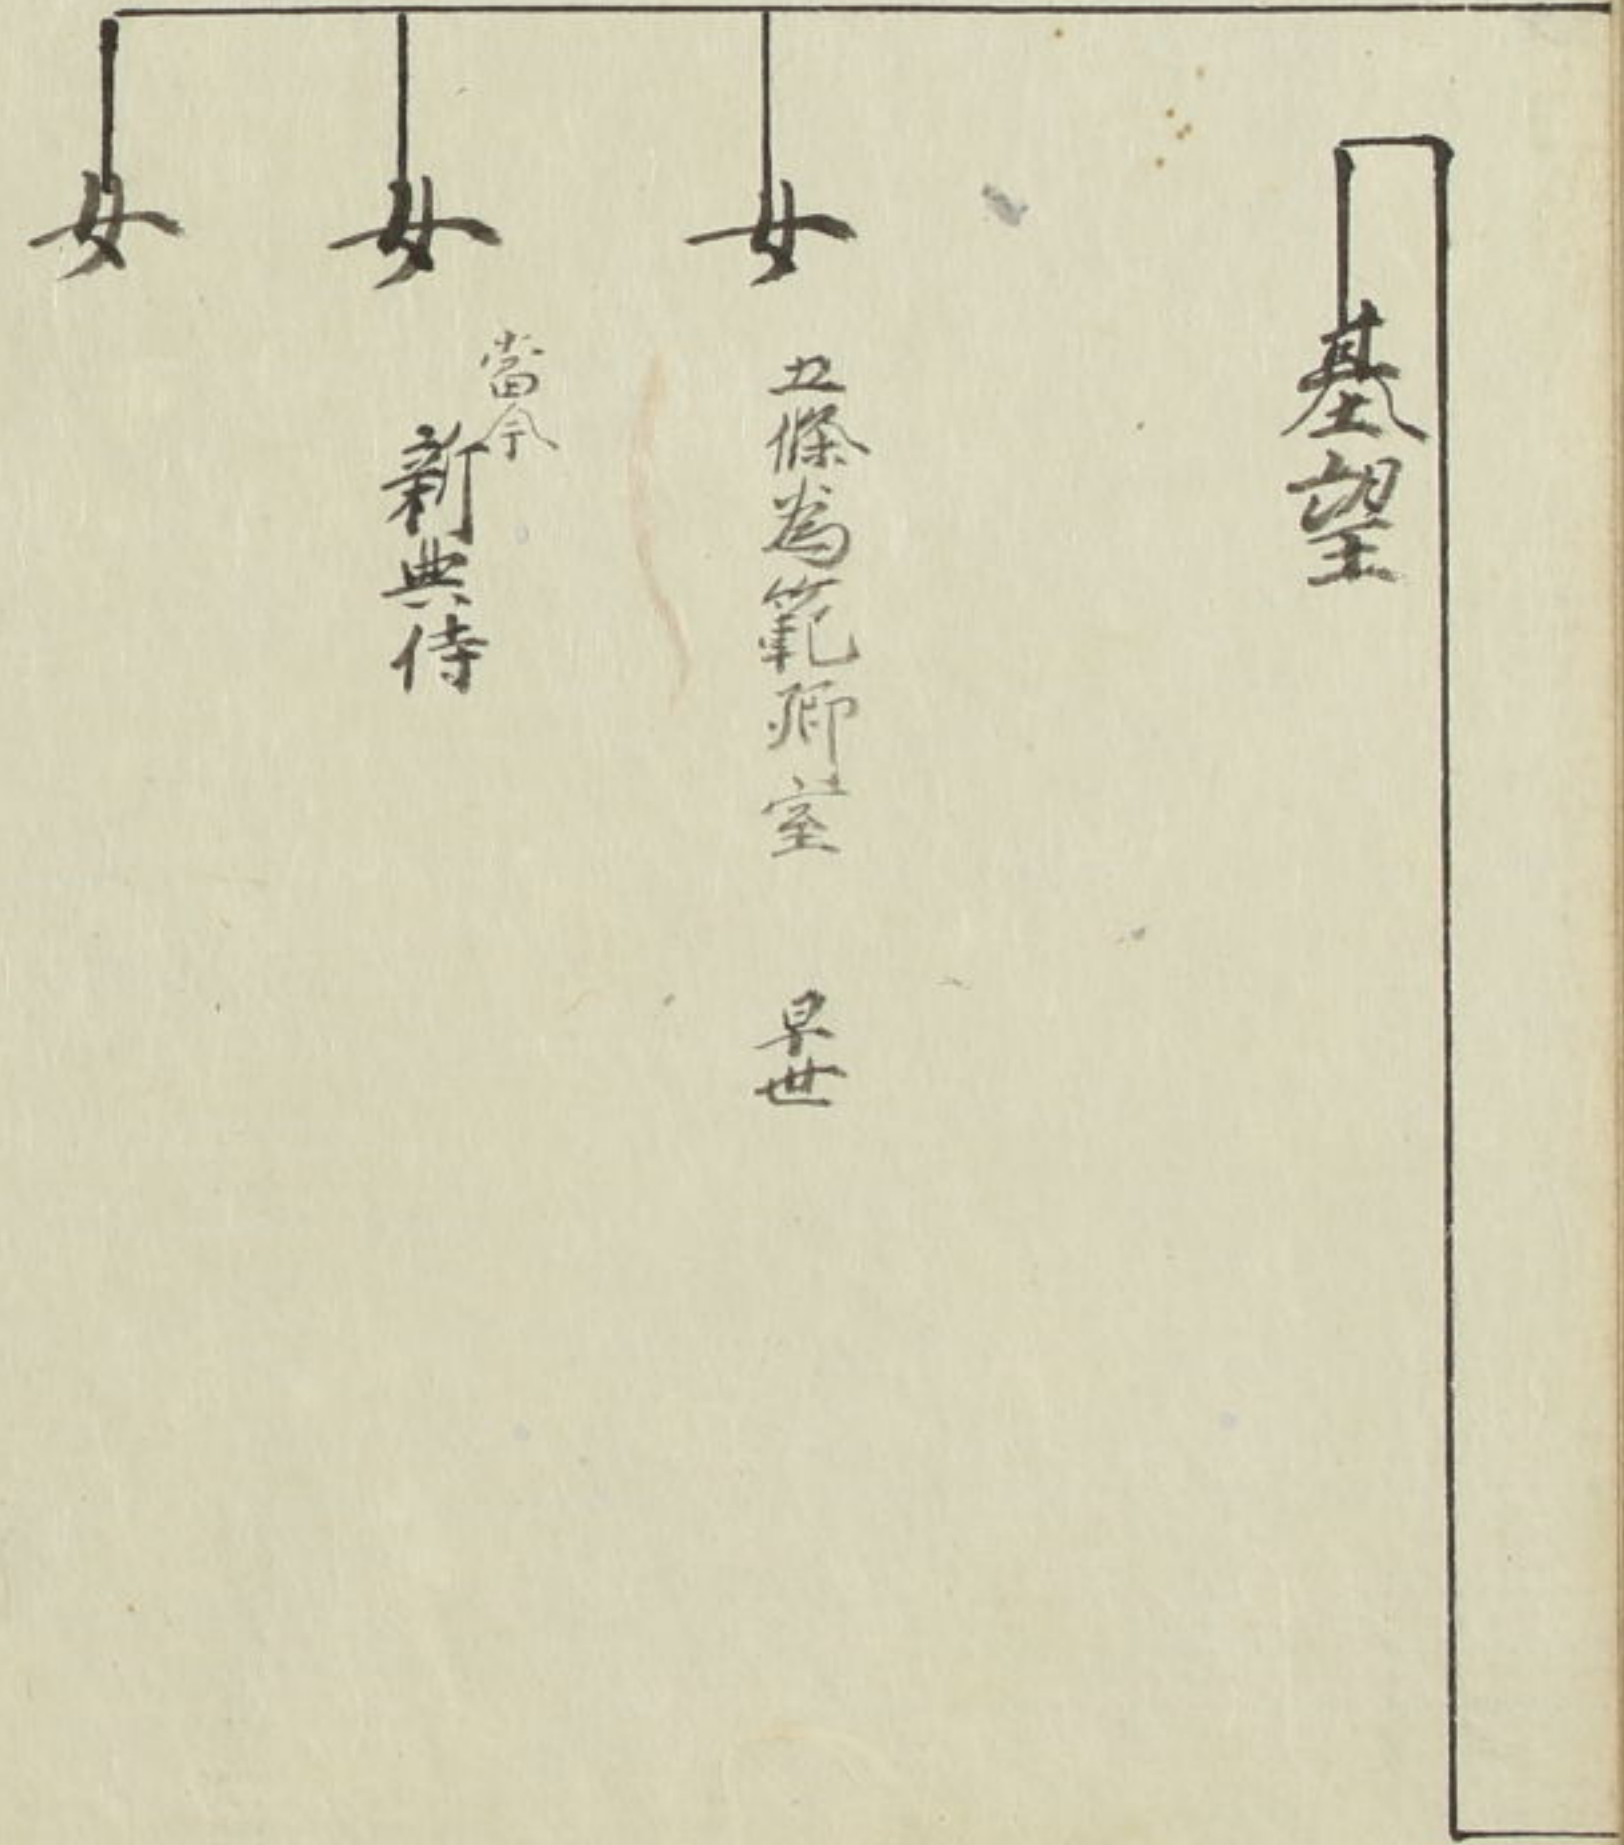 基望
女
五條為範卿室 早世
女
當今
新典侍
女